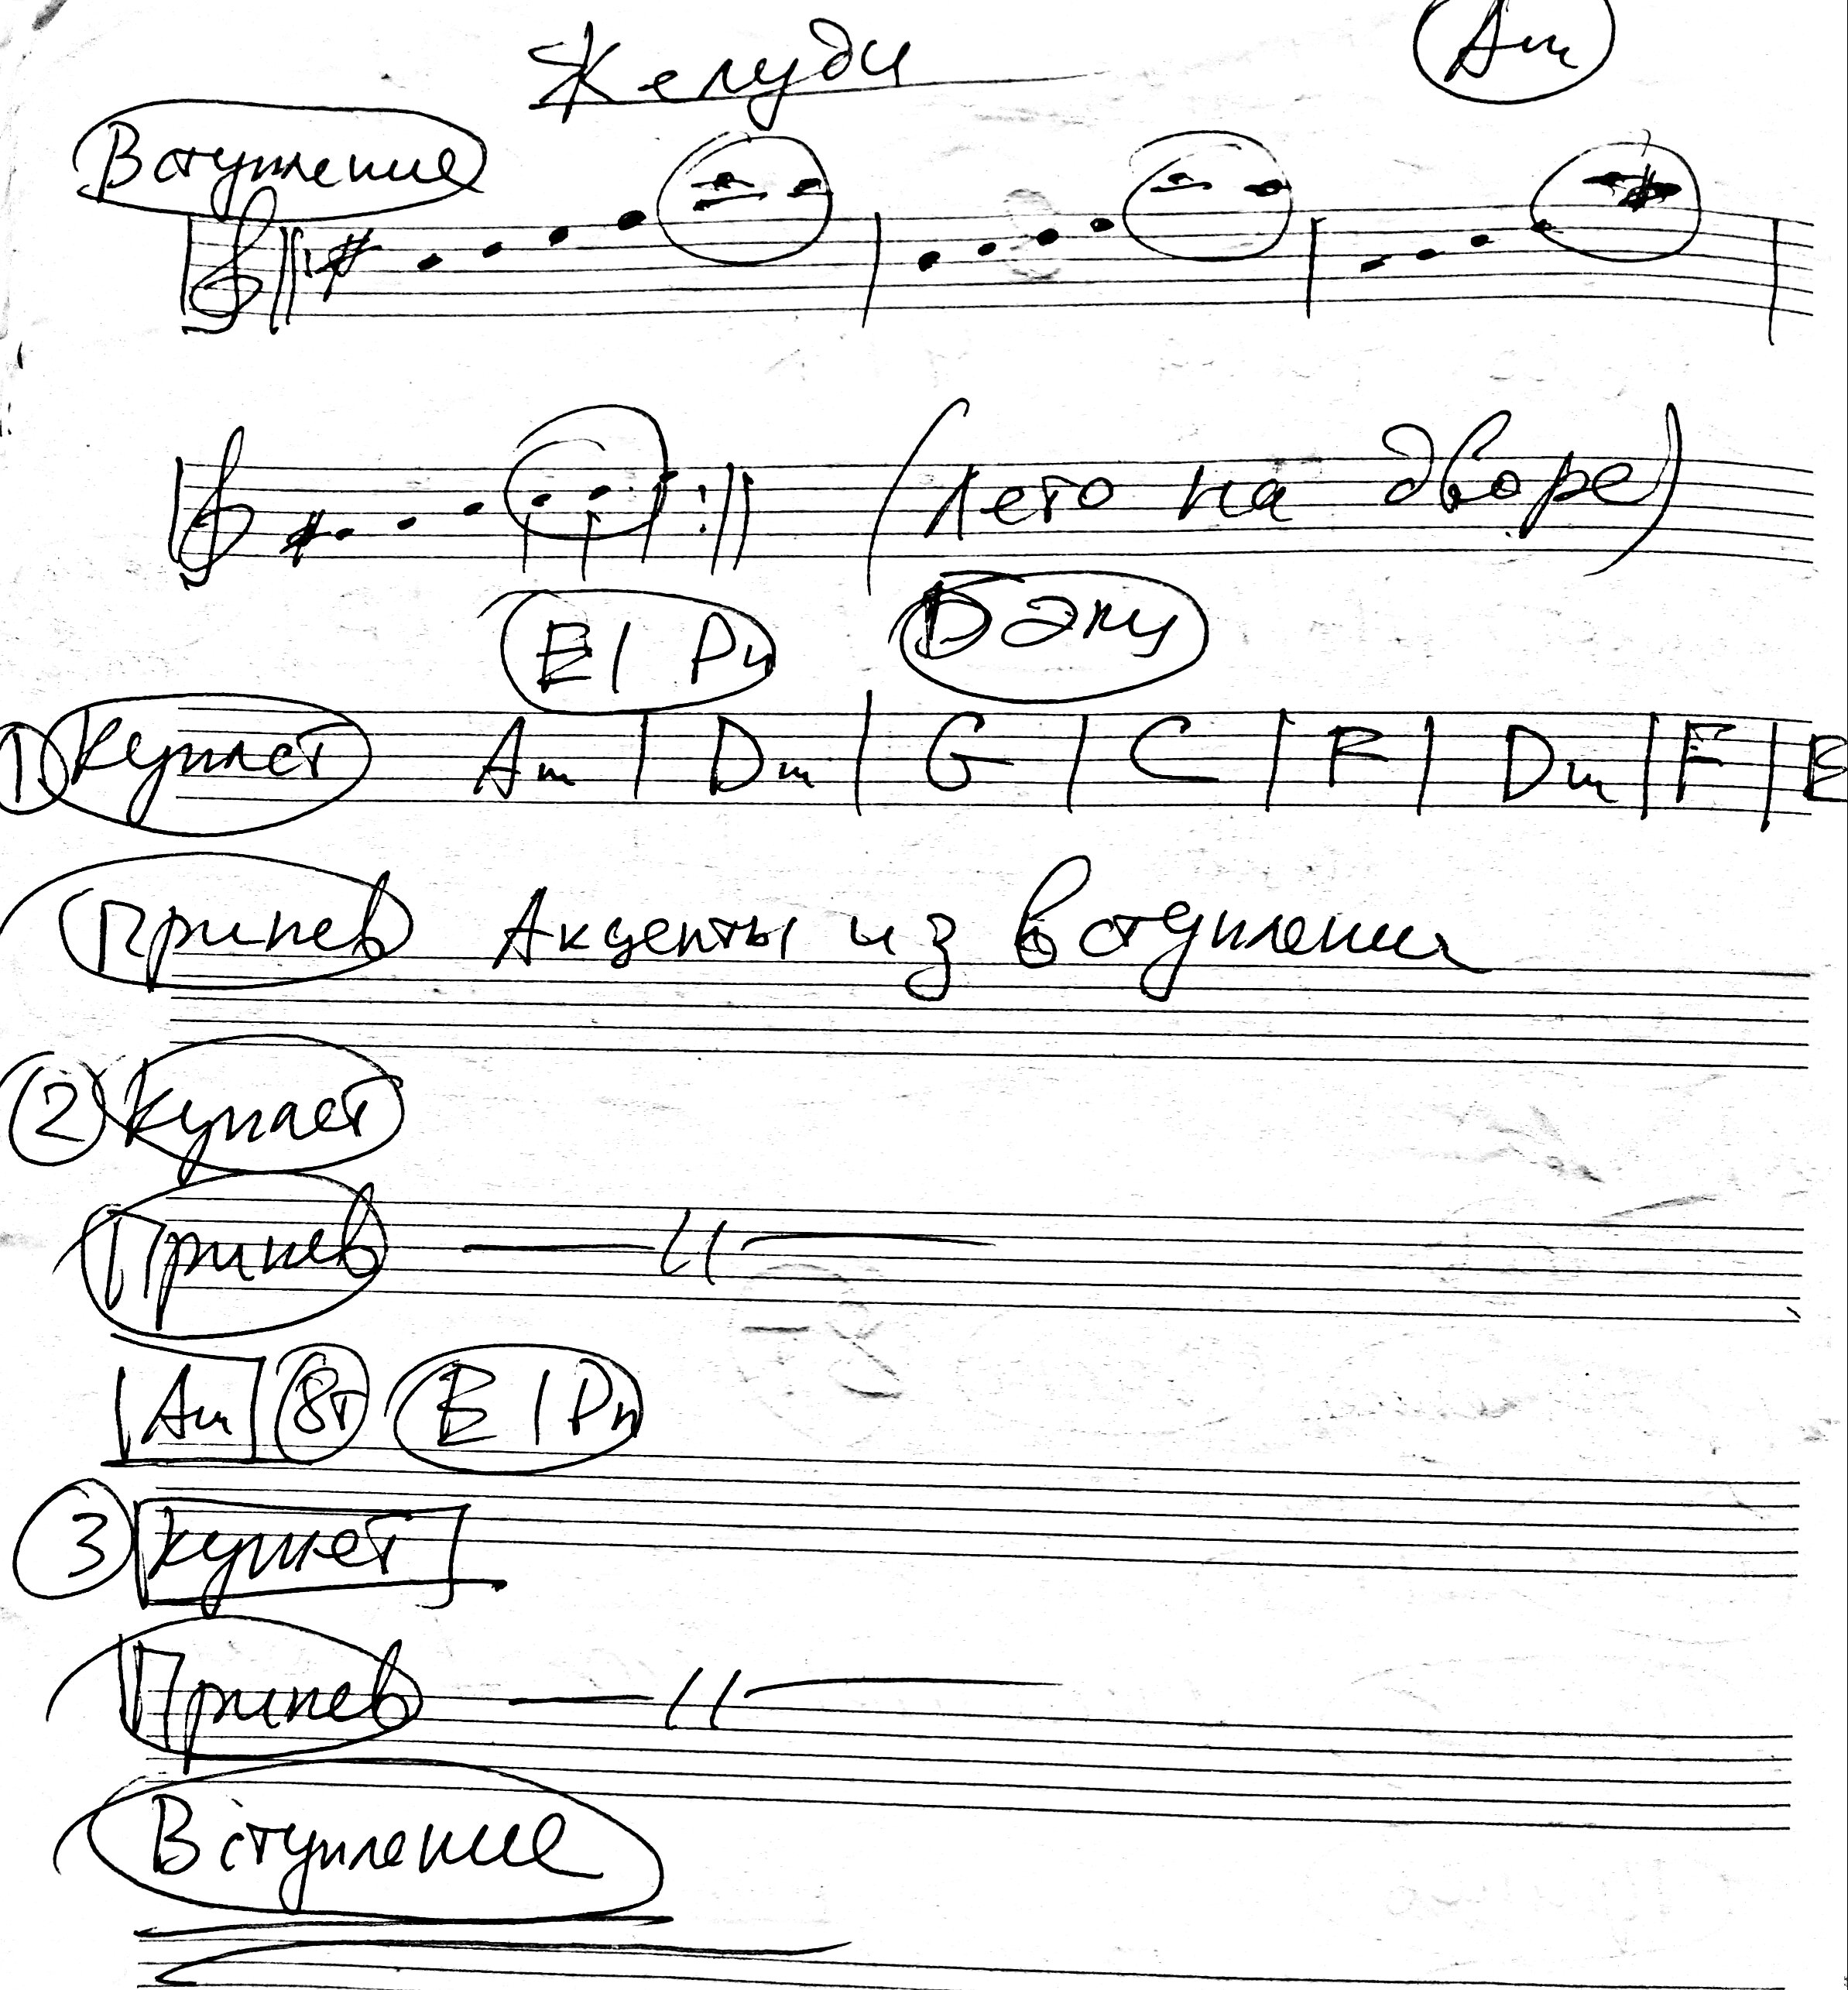 Желуди Am
Вступление
(Лето на дворе)
El Pn Бэлу
1 Куплет Am | Dm | G | C | F | Dm | F | E
Припев Акценты из вступления
2 Куплет
Припев — // —
Am 8т El Pn
3 Куплет
Припев — // —
Вступление